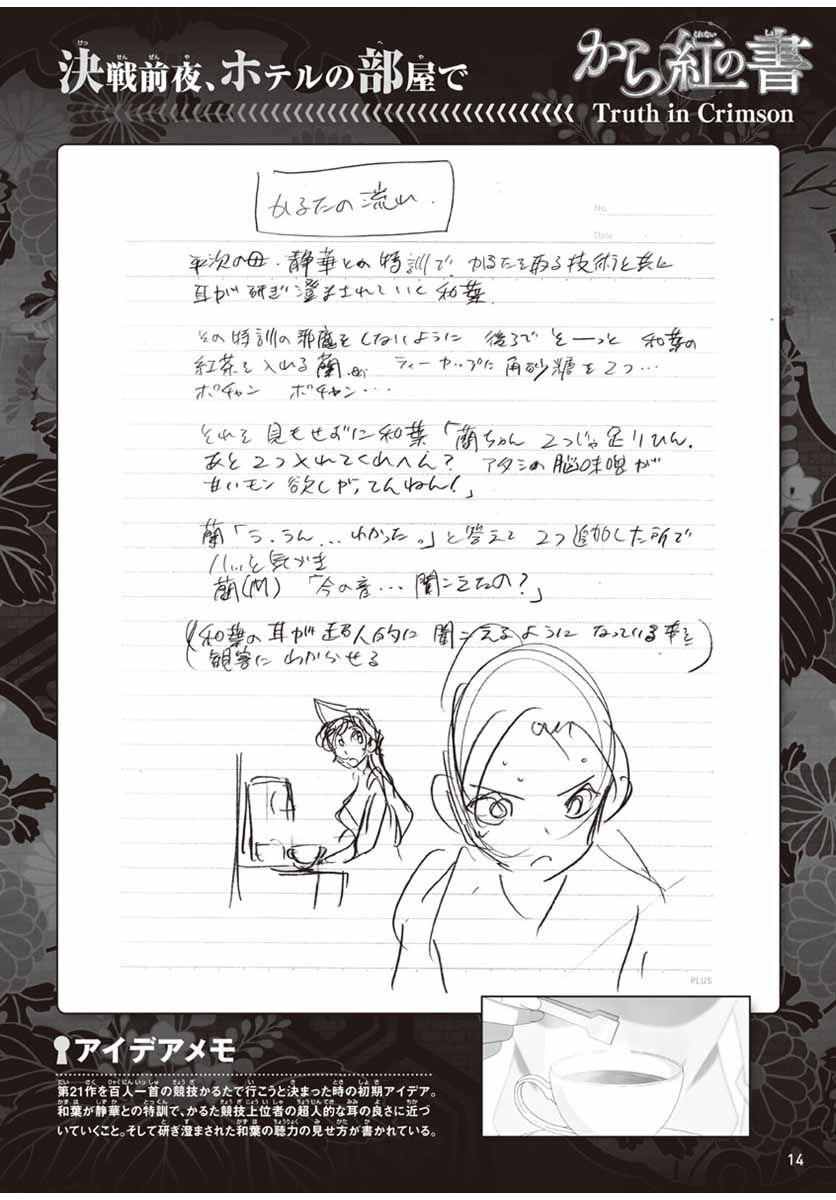 決戦前夜、ホテルの部屋で
から紅の書
Truth in Crimson
かるたの流れ.
No.
Date
平次の母・静華との特訓で かるたを取る技術と共に
耳が研ぎ澄まされていく和葉.
その特訓の邪魔をしないように 後ろで そーっと 和葉の
紅茶を入れる蘭.が ティーカップに角砂糖を2つ…
ポチャン ポチャン…
それを見もせずに和葉「蘭ちゃん 2つじゃ足りひん.
あと2つ入れてくれへん? アタシの脳味噌が
甘いモン欲しがってんねん!」
蘭「う、うん… わかった。」と答えて 2つ追加した所で
ハッと気づき
蘭(M) 「今の音… 聞こえたの?」
(和葉の耳が超人的に聞こえるようになっている事を
観客にわからせる)
PLUS
アイデアメモ
第21作を百人一首の競技かるたで行こうと決まった時の初期アイデア。
和葉が静華との特訓で、かるた競技上位者の超人的な耳の良さに近づ
いていくこと。そして研ぎ澄まされた和葉の聴力の見せ方が書かれている。
14